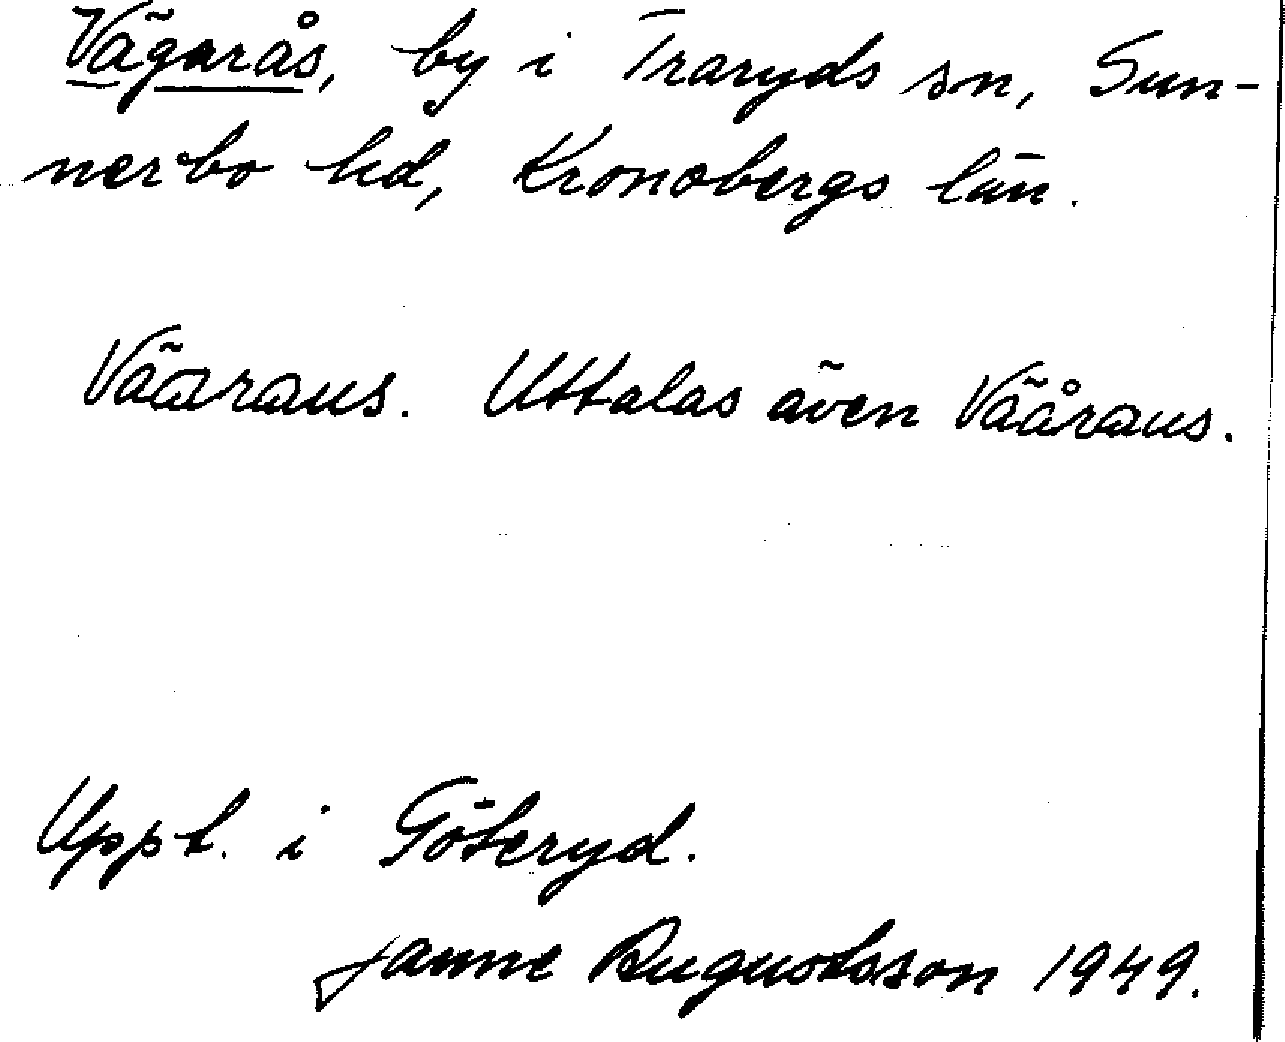 Vägarås, by i Traryds sn, Sun-
nerbo hd, Kronobergs län.
Vääraus. Uttalas även Väåraus.
Uppt. i Göteryd.
Janne Augustsson 1949.